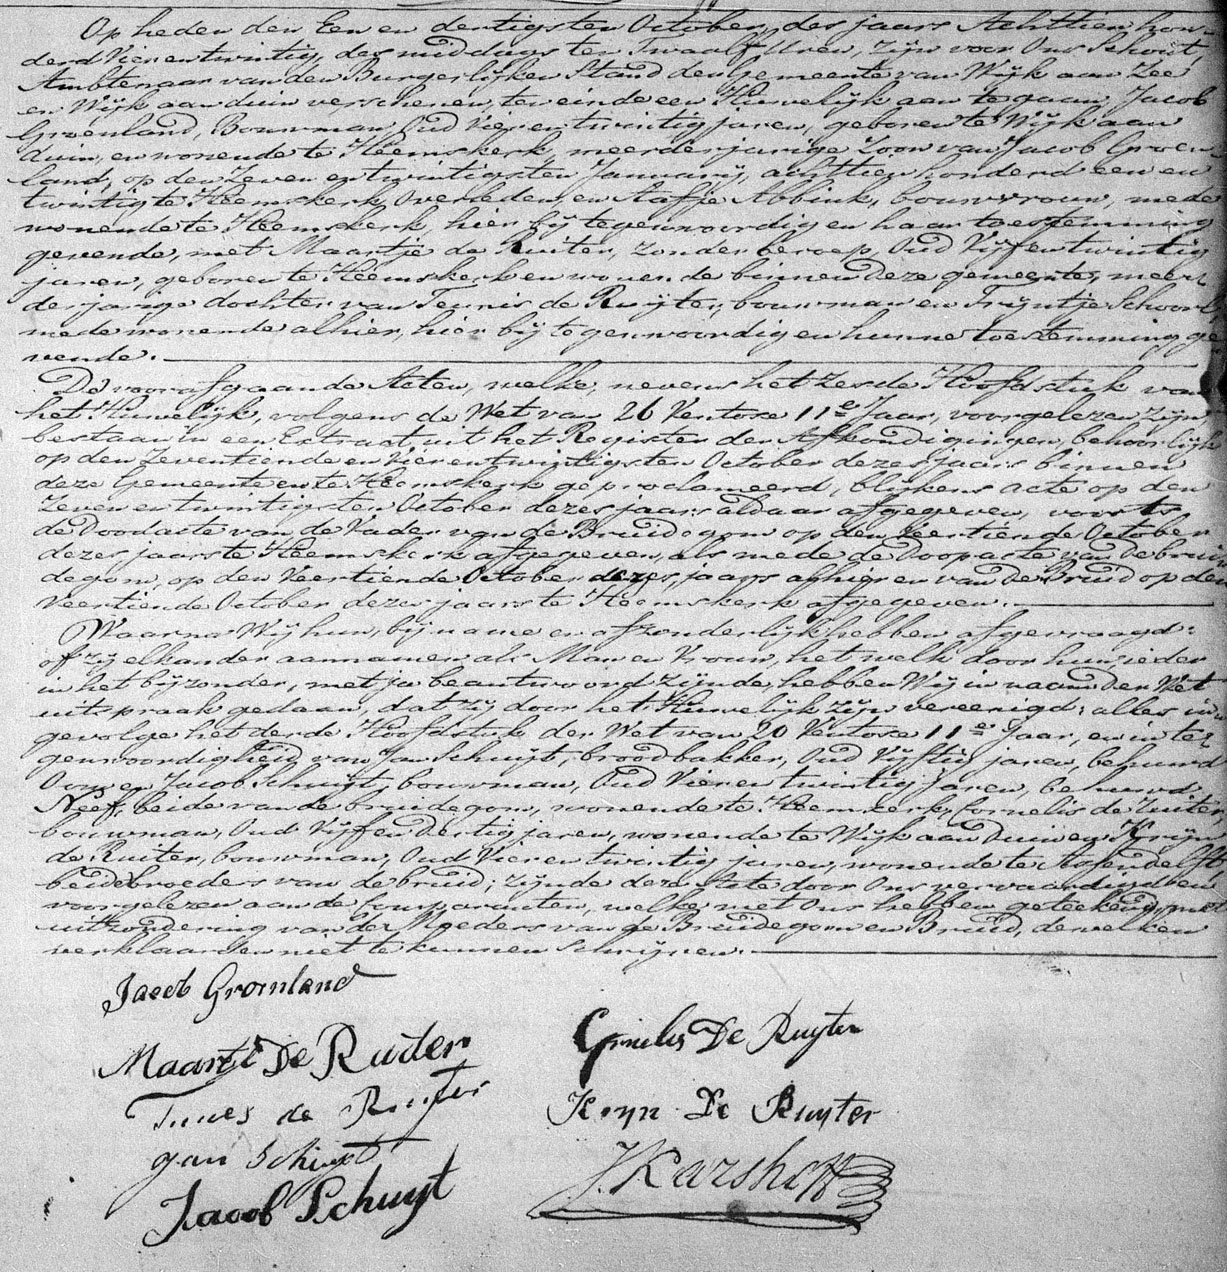 Op heden den Een en dertigsten October, des jaars Achttien hon-
derd Vier en twintig, des middags ten Twaalf Uren, zijn voor Ons Schout,
Ambtenaar van den Burgerlijken Stand der Gemeente van Wijk aan Zee
en Wijk aan duin verschenen, ten einde een Huwelijk aan te gaan, Jacob
Groenland, Bouwman, Oud Vier en twintig jaren, geboren te Wijk aan
duin, en wonende te Heemskerk, meerderjarige Zoon van Jacob Groen-
land, op den Zeven en twintigsten Januarij, achttien honderd een en
twintig te Heemskerk Overleden, en Aafje Abbink, bouwvrouw, mede
wonende te Heemskerk, hier bij tegenwoordig en haar toestemming
gevende, met Maartje de Ruiter, zonder beroep, Oud Vijf en twintig
jaren, geboren te Heemskerk en wonende binnen deze gemeente, meer-
derjarige dochter van Teunis de Ruijter, bouwman en Trijntje Schoorl
mede wonende alhier, hier bij tegenwoordig en hunne toestemming ge
vende.
De voorafgaande Acten, welke, nevens het Zesde Hoofdstuk van
het Huwelijk, volgens de Wet van 26 Ventose 11e Jaar, voorgelezen zijn
bestaan in een Extract uit het Register der Afkondigingen, behoorlijk
op den Zeventiende en Vier en twintigsten October dezes jaars binnen
deze Gemeente en te Heemskerk geproclameerd, blijkens acte op den
Zeven en twintigsten October dezes jaars aldaar afgegeven, voorts
de Doodacte van de Vader van de Bruidegom op den Veertiende October
dezes jaars te Heemskerk afgegeven, als mede de Doopacte van de brui
degom, op den Veertiende October dezes jaars alhier en van de Bruid op den
Veertiende October dezes jaars te Heemskerk afgegeven.
Waarna Wij hun, bij name en afzonderlijk hebben afgevraagd:
of zij elkander aannamen als Man en Vrouw, het welk door hun ieder
in het bijzonder, met ja beantwoord zijnde, hebben Wij in naam der Wet
uitspraak gedaan, dat zij door het Huwelijk zijn vereenigd; alles in
gevolge het derde Hoofdstuk der Wet van 20 Ventose 11e Jaar, en in te-
genwoordigheid van Jan Schuijt, broodbakker, Oud Vijftig jaren, behuwd
Oom en Jacob Schuijt, bouwman, Oud Vier en twintig Jaren, behuwd
Neef, beide van de bruidegom, wonende te Heemskerk, Cornelis de Ruiter,
bouwman, Oud Vijf en dertig jaren, wonende te Wijk aan Duin en Krijn
de Ruiter, bouwman, Oud Vier en twintig jaren, wonende te Assendelft,
beide broeders van de bruid; zijnde deze Acte door Ons vervaardigd en
voorgelezen aan de Comparanten, welke met Ons hebben geteekend, met
uitzondering van de Moeders van de Bruidegom en Bruid, dewelken
verklaarden niet te kunnen schrijven.
Jacob Gronland
Maartje De Ruiter
Cornelis De Ruyter
Tunes de Ruyter
Kryn De Ruyter
Jan Schuyt
Jacob Schuyt